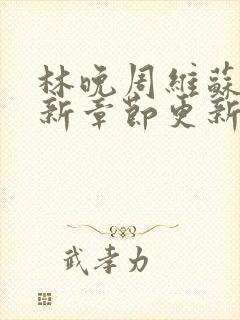 林晚周維蘇
新章節更新
武孝力